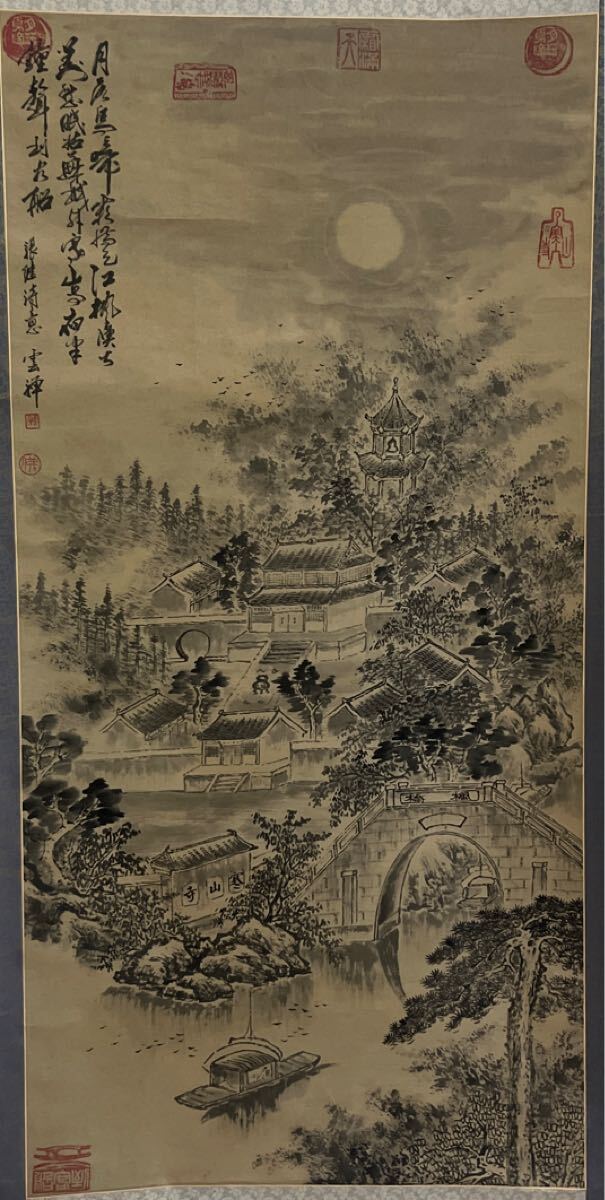 月落烏啼霜滿天江楓漁火
對愁眠姑蘇城外寒山寺夜半
鐘聲到客船
張継詩意 雲禅
楓橋
寒山寺